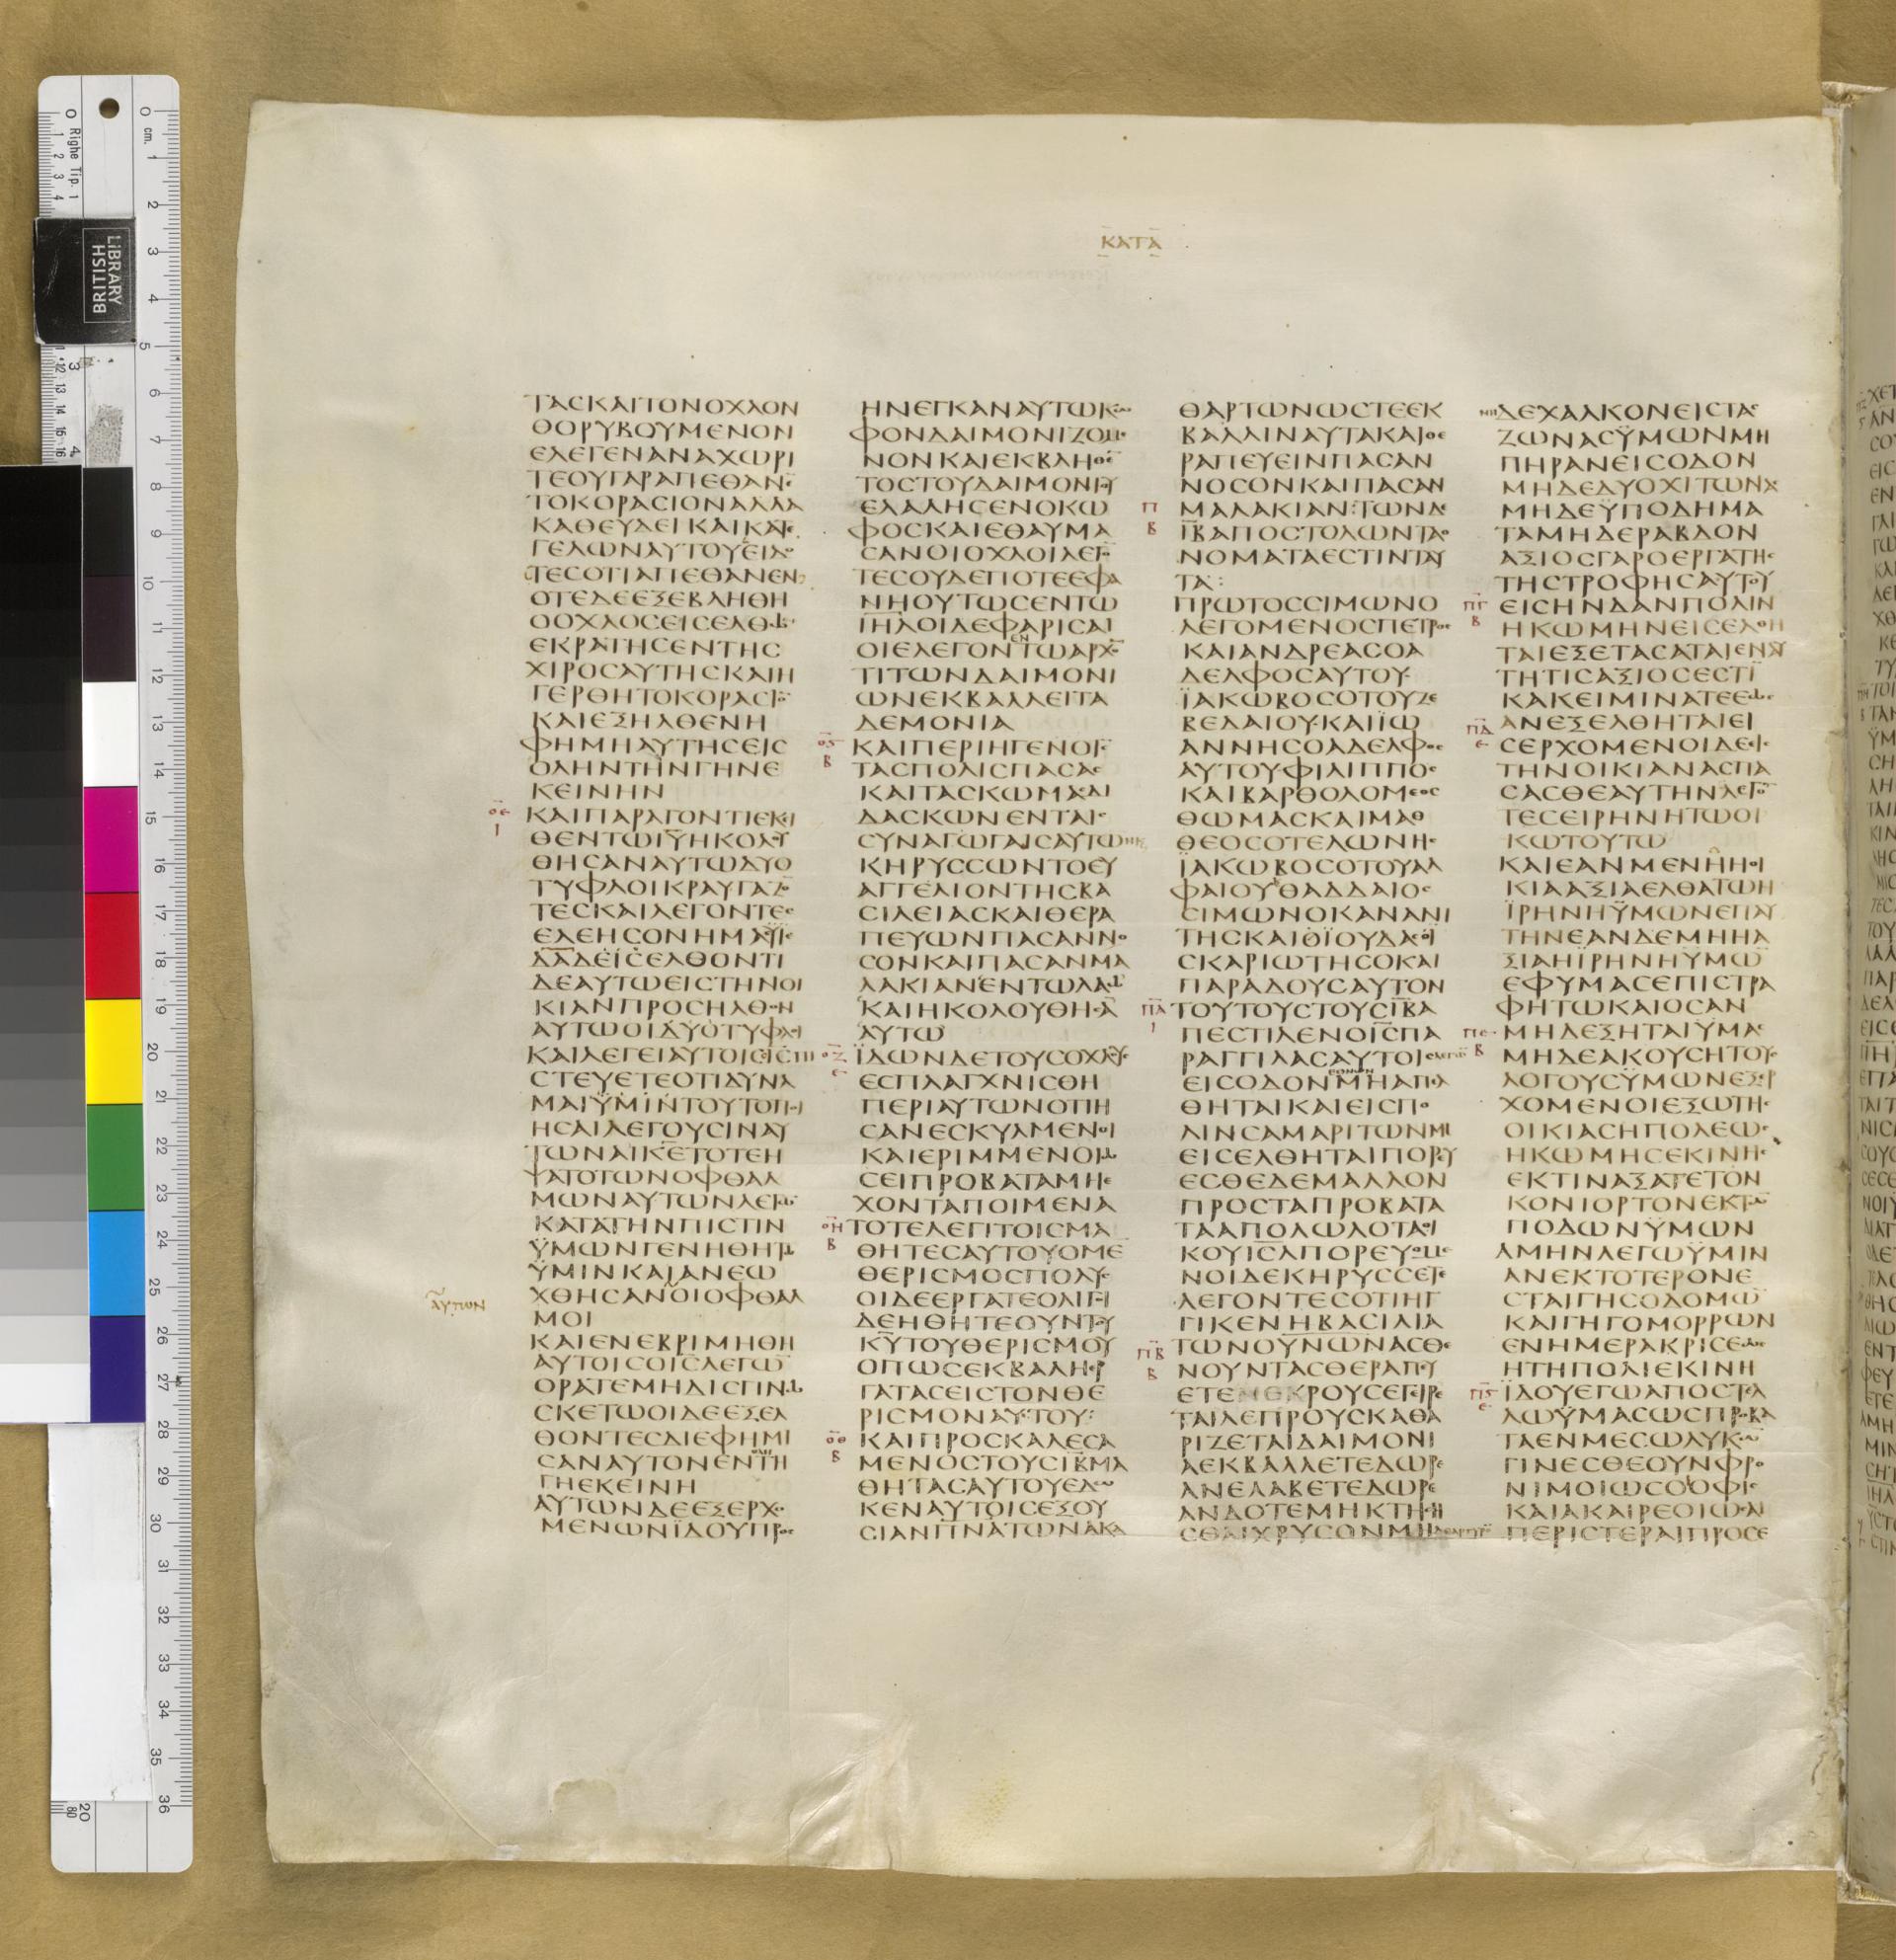 ΚΑΤΑ
ΤΑϹΚΑΙΤΟΝΟΧΛΟΝ
ΘΟΡΥΒΟΥΜΕΝΟΝ
ΕΛΕΓΕΝΑΝΑΧΩΡΙ
ΤΕΟΥΓΑΡΑΠΕΘΑΝΕ
ΤΟΚΟΡΑϹΙΟΝΑΛΛΑ
ΚΑΘΕΥΔΕΙΚΑΙΚΑΤΕ
ΓΕΛΩΝΑΥΤΟΥΕΙΔΟ
ΤΕϹΟΤΙΑΠΕΘΑΝΕΝ
ΟΤΕΔΕΕΞΕΒΛΗΘΗ
ΟΟΧΛΟϹΕΙϹΕΛΘΩΝ
ΕΚΡΑΤΗϹΕΝΤΗϹ
ΧΙΡΟϹΑΥΤΗϹΚΑΙΗ
ΓΕΡΘΗΤΟΚΟΡΑϹΙΟ̅
ΚΑΙΕΞΗΛΘΕΝΗ
ΦΗΜΗΑΥΤΗϹΕΙϹ
ΟΛΗΝΤΗΝΓΗΝΕ
ΚΕΙΝΗΝ
ΟΕ Ι
ΚΑΙΠΑΡΑΓΟΝΤΙΕΚΙ
ΘΕΝΤΩΙΥ̅ΗΚΟΛΟΥ
ΘΗϹΑΝΑΥΤΩΔΥΟ
ΤΥΦΛΟΙΚΡΑΥΓΑΖΟ̅
ΤΕϹΚΑΙΛΕΓΟΝΤΕϹ
ΕΛΕΗϹΟΝΗΜΑϹΥΙΕ
Δ̅Α̅Δ̅ΕΙϹΕΛΘΟΝΤΙ
ΔΕΑΥΤΩΕΙϹΤΗΝΟΙ
ΚΙΑΝΠΡΟϹΗΛΘΟΝ
ΑΥΤΩΟΙΔΥΟΤΥΦΛΟΙ
ΚΑΙΛΕΓΕΙΑΥΤΟΙϹΟΙ̅Ϲ̅ΠΙ
ϹΤΕΥΕΤΕΟΤΙΔΥΝΑ
ΜΑΙΫΜΙΝΤΟΥΤΟΠΟΙ
ΗϹΑΙΛΕΓΟΥϹΙΝΑΥ
ΤΩΝΑΙΚΕΤΟΤΕΗ
ΨΑΤΟΤΩΝΟΦΘΑΛ
ΜΩΝΑΥΤΩΝΛΕΓΩΝ
ΚΑΤΑΤΗΝΠΙϹΤΙΝ
ΫΜΩΝΓΕΝΗΘΗΤΩ
ΫΜΙΝΚΑΙΑΝΕΩ
ΧΘΗϹΑΝΟΙΟΦΘΑΛ
ΑΥΤΩΝ
ΜΟΙ
ΚΑΙΕΝΕΒΡΙΜΗΘΗ
ΑΥΤΟΙϹΟΙ̅Ϲ̅ΛΕΓΩ̅
ΟΡΑΤΕΜΗΔΙϹΓΙΝΩ
ϹΚΕΤΩΟΙΔΕΕΞΕΛ
ΘΟΝΤΕϹΔΙΕΦΗΜΙ
ϹΑΝΑΥΤΟΝΕΝΤΗ
ΓΗΕΚΕΙΝΗ
ΑΥΤΩΝΔΕΕΞΕΡΧΟ
ΜΕΝΩΝΪΔΟΥΠΡΟϹ
ΗΝΕΓΚΑΝΑΥΤΩΚΩ
ΦΟΝΔΑΙΜΟΝΙΖΟΜΕ
ΝΟΝΚΑΙΕΚΒΛΗΘΕ̅
ΤΟϹΤΟΥΔΑΙΜΟΝΙΟΥ
ΕΛΑΛΗϹΕΝΟΚΩ
ΦΟϹΚΑΙΕΘΑΥΜΑ
ϹΑΝΟΙΟΧΛΟΙΛΕΓΟ̅
ΤΕϹΟΥΔΕΠΟΤΕΕΦΑ
ΝΗΟΥΤΩϹΕΝΤΩ
Ι̅Η̅Λ̅ΟΙΔΕΦΑΡΙϹΑΙ
ΕΝ
ΟΙΕΛΕΓΟΝΤΩΑΡΧΟ̅
ΤΙΤΩΝΔΑΙΜΟΝΙ
ΩΝΕΚΒΑΛΛΕΙΤΑ
ΔΕΜΟΝΙΑ
ΟϚ Β
ΚΑΙΠΕΡΙΗΓΕΝΟΙ̅Ϲ̅
ΤΑϹΠΟΛΙϹΠΑϹΑϹ
ΚΑΙΤΑϹΚΩΜΑϹΔΙ
ΔΑϹΚΩΝΕΝΤΑΙϹ
ϹΥΝΑΓΩΓΑΙϹΑΥΤΩΝΚΕ
ΚΗΡΥϹϹΩΝΤΟΕΥ
ΑΓΓΕΛΙΟΝΤΗϹΒΑ
ϹΙΛΕΙΑϹΚΑΙΘΕΡΑ
ΠΕΥΩΝΠΑϹΑΝΝΟ
ϹΟΝΚΑΙΠΑϹΑΝΜΑ
ΛΑΚΙΑΝΕΝΤΩΛΑΩ
ΚΑΙΗΚΟΛΟΥΘΗϹΑ̅
ΑΥΤΩ
ΟΖ Ϛ
ΪΔΩΝΔΕΤΟΥϹΟΧΛΟΥϹ
ΕϹΠΛΑΓΧΝΙϹΘΗ
ΠΕΡΙΑΥΤΩΝΟΤΙΗ
ϹΑΝΕϹΚΥΛΜΕΝΟΙ
ΚΑΙΕΡΙΜΜΕΝΟΙΩ
ϹΕΙΠΡΟΒΑΤΑΜΗΕ
ΧΟΝΤΑΠΟΙΜΕΝΑ
ΟΗ Β
ΤΟΤΕΛΕΓΙΤΟΙϹΜΑ
ΘΗΤΕϹΑΥΤΟΥΟΜΕ̅
ΘΕΡΙϹΜΟϹΠΟΛΥϹ
ΟΙΔΕΕΡΓΑΤΕΟΛΙΓΟΙ
ΔΕΗΘΗΤΕΟΥΝΤΟΥ
Κ̅Υ̅ΤΟΥΘΕΡΙϹΜΟΥ
ΟΠΩϹΕΚΒΑΛΗΕΡ
ΓΑΤΑϹΕΙϹΤΟΝΘΕ
ΡΙϹΜΟΝΑΥΤΟΥ:
ΟΘ Β
ΚΑΙΠΡΟϹΚΑΛΕϹΑ
ΜΕΝΟϹΤΟΥϹΙ̅Β̅ΜΑ
ΘΗΤΑϹΑΥΤΟΥΕΔΩ
ΚΕΝΑΥΤΟΙϹΕΞΟΥ
ϹΙΑΝΠ̅Ν̅Α̅ΤΩΝΑΚΑ
ΘΑΡΤΩΝΩϹΤΕΕΚ
ΒΑΛΛΙΝΑΥΤΑΚΑΙΘΕ
ΡΑΠΕΥΕΙΝΠΑϹΑΝ
ΝΟϹΟΝΚΑΙΠΑϹΑΝ
Π Β
ΜΑΛΑΚΙΑΝ:ΤΩΝΔΕ
Ι̅Β̅ΑΠΟϹΤΟΛΩΝΤΑΟ
ΝΟΜΑΤΑΕϹΤΙΝΤΑΥ
ΤΑ:
ΠΡΩΤΟϹϹΙΜΩΝΟ
ΛΕΓΟΜΕΝΟϹΠΕΤΡΟϹ
ΚΑΙΑΝΔΡΕΑϹΟΑ
ΔΕΛΦΟϹΑΥΤΟΥ
ΪΑΚΩΒΟϹΟΤΟΥΖΕ
ΒΕΔΑΙΟΥΚΑΙΪΩ
ΑΝΝΗϹΟΑΔΕΛΦΟϹ
ΑΥΤΟΥΦΙΛΙΠΠΟϹ
ΚΑΙΒΑΡΘΟΛΟΜΕΟϹ
ΘΩΜΑϹΚΑΙΜΑΘ
ΘΕΟϹΟΤΕΛΩΝΗϹ
ΪΑΚΩΒΟϹΟΤΟΥΑΛ
ΦΑΙΟΥΘΑΔΔΑΙΟϹ
ϹΙΜΩΝΟΚΑΝΑΝΙ
ΤΗϹΚΑΙΟΪΟΥΔΑϹΟΪ
ϹΚΑΡΙΩΤΗϹΟΚΑΙ
ΠΑΡΑΔΟΥϹΑΥΤΟΝ
ΠΑ Ι
ΤΟΥΤΟΥϹΤΟΥϹΙ̅Β̅Α
ΠΕϹΤΙΛΕΝΟΙ̅Ϲ̅ΠΑ
ΡΑΓΓΙΛΑϹΑΥΤΟΙϹΛΕΓΩ̅
ΕΘΝΩΝ
ΕΙϹΟΔΟΝΜΗΑΠΕΛ
ΘΗΤΑΙΚΑΙΕΙϹΠΟ
ΛΙΝϹΑΜΑΡΙΤΩΝΜΗ
ΕΙϹΕΛΘΗΤΑΙΠΟΡΕΥ
ΕϹΘΕΔΕΜΑΛΛΟΝ
ΠΡΟϹΤΑΠΡΟΒΑΤΑ
ΤΑΑΠΟΛΩΛΟΤΑΟΙ
ΚΟΥΙϹΑΠΟΡΕΥΟΜΕ
ΝΟΙΔΕΚΗΡΥϹϹΕΤΕ
ΛΕΓΟΝΤΕϹΟΤΙΗΓ
ΓΙΚΕΝΗΒΑϹΙΛΙΑ
ΠΒ Β
ΤΩΝΟΥ̅Ν̅ΩΝΑϹΘΕ
ΝΟΥΝΤΑϹΘΕΡΑΠΕΥ
ΕΤΕΝΕΚΡΟΥϹΕΓΕΙΡΕ
ΤΑΙΛΕΠΡΟΥϹΚΑΘΑ
ΡΙΖΕΤΑΙΔΑΙΜΟΝΙ
ΑΕΚΒΑΛΛΕΤΕΔΩΡΕ
ΑΝΕΛΑΒΕΤΕΔΩΡΕ
ΑΝΔΟΤΕΜΗΚΤΗϹΗ
ϹΘΑΙΧΡΥϹΟΝΜΗΔΕΑΡΓΥΡΟ̅
ΜΗ
ΔΕΧΑΛΚΟΝΕΙϹΤΑϹ
ΖΩΝΑϹΫΜΩΝΜΗ
ΠΗΡΑΝΕΙϹΟΔΟΝ
ΜΗΔΕΔΥΟΧΙΤΩΝΑϹ
ΜΗΔΕΫΠΟΔΗΜΑ
ΤΑΜΗΔΕΡΑΒΔΟΝ
ΑΞΙΟϹΓΑΡΟΕΡΓΑΤΗϹ
ΤΗϹΤΡΟΦΗϹΑΥΤΟΥ
ΠΓ Β
ΕΙϹΗΝΔΑΝΠΟΛΙΝ
ΗΚΩΜΗΝΕΙϹΕΛΘΗ
ΤΑΙΕΞΕΤΑϹΑΤΑΙΕΝΑΥ
ΤΗΤΙϹΑΞΙΟϹΕϹΤΙ̅
ΚΑΚΕΙΜΙΝΑΤΕΕΩϹ
ΠΔ Ε
ΑΝΕΞΕΛΘΗΤΑΙΕΙ
ϹΕΡΧΟΜΕΝΟΙΔΕΕΙϹ
ΤΗΝΟΙΚΙΑΝΑϹΠΑ
ϹΑϹΘΕΑΥΤΗΝΛΕΓΟ̅
ΤΕϹΕΙΡΗΝΗΤΩΟΙ
ΚΩΤΟΥΤΩ
ΚΑΙΕΑΝΜΕΝΗΗΟΙ
ΚΙΑΑΞΙΑΕΛΘΑΤΩΗ
ΪΡΗΝΗΫΜΩΝΕΠΑΥ
ΤΗΝΕΑΝΔΕΜΗΗΑ
ΞΙΑΗΪΡΗΝΗΥΜΩ̅
ΕΦΥΜΑϹΕΠΙϹΤΡΑ
ΦΗΤΩΚΑΙΟϹΑΝ
ΠΕ Β
ΜΗΔΕΞΗΤΑΙΥΜΑϹ
ΜΗΔΕΑΚΟΥϹΗΤΟΥϹ
ΛΟΓΟΥϹΫΜΩΝΕΞΕΡ
ΧΟΜΕΝΟΙΕΞΩΤΗϹ
ΟΙΚΙΑϹΗΠΟΛΕΩϹ
ΗΚΩΜΗϹΕΚΙΝΗϹ
ΕΚΤΙΝΑΞΑΤΕΤΟΝ
ΚΟΝΙΟΡΤΟΝΕΚΤΩ̅
ΠΟΔΩΝΫΜΩΝ
ΑΜΗΝΛΕΓΩΫΜΙΝ
ΑΝΕΚΤΟΤΕΡΟΝΕ
ϹΤΑΙΓΗϹΟΔΟΜΩ̅
ΚΑΙΓΗΓΟΜΟΡΡΩΝ
ΕΝΗΜΕΡΑΚΡΙϹΕΩϹ
ΗΤΗΠΟΛΙΕΚΙΝΗ
ΠϚ Ε
ΪΔΟΥΕΓΩΑΠΟϹΤΕΛ
ΛΩΫΜΑϹΩϹΠΡΟΒΑ
ΤΑΕΝΜΕϹΩΛΥΚΩ̅
ΓΙΝΕϹΘΕΟΥΝΦΡΟ
ΝΙΜΟΙΩϹΟΟΦΙϹ
ΚΑΙΑΚΑΙΡΕΟΙΩϹΑΙ
ΠΕΡΙϹΤΕΡΑΙΠΡΟϹΕ